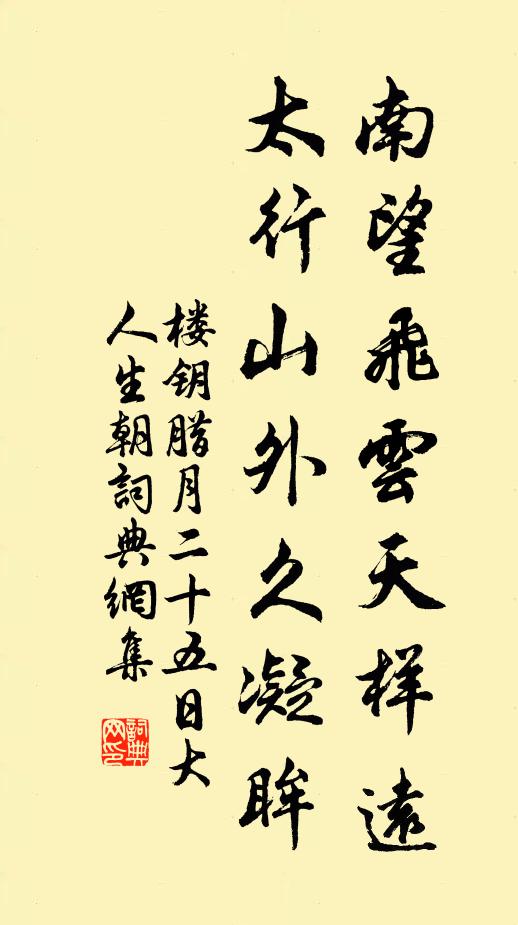 南望飛雲天样遠
太行山外久凝眸
楼钥腊月二十五日大
人生朝詞典網集
詞典
网印